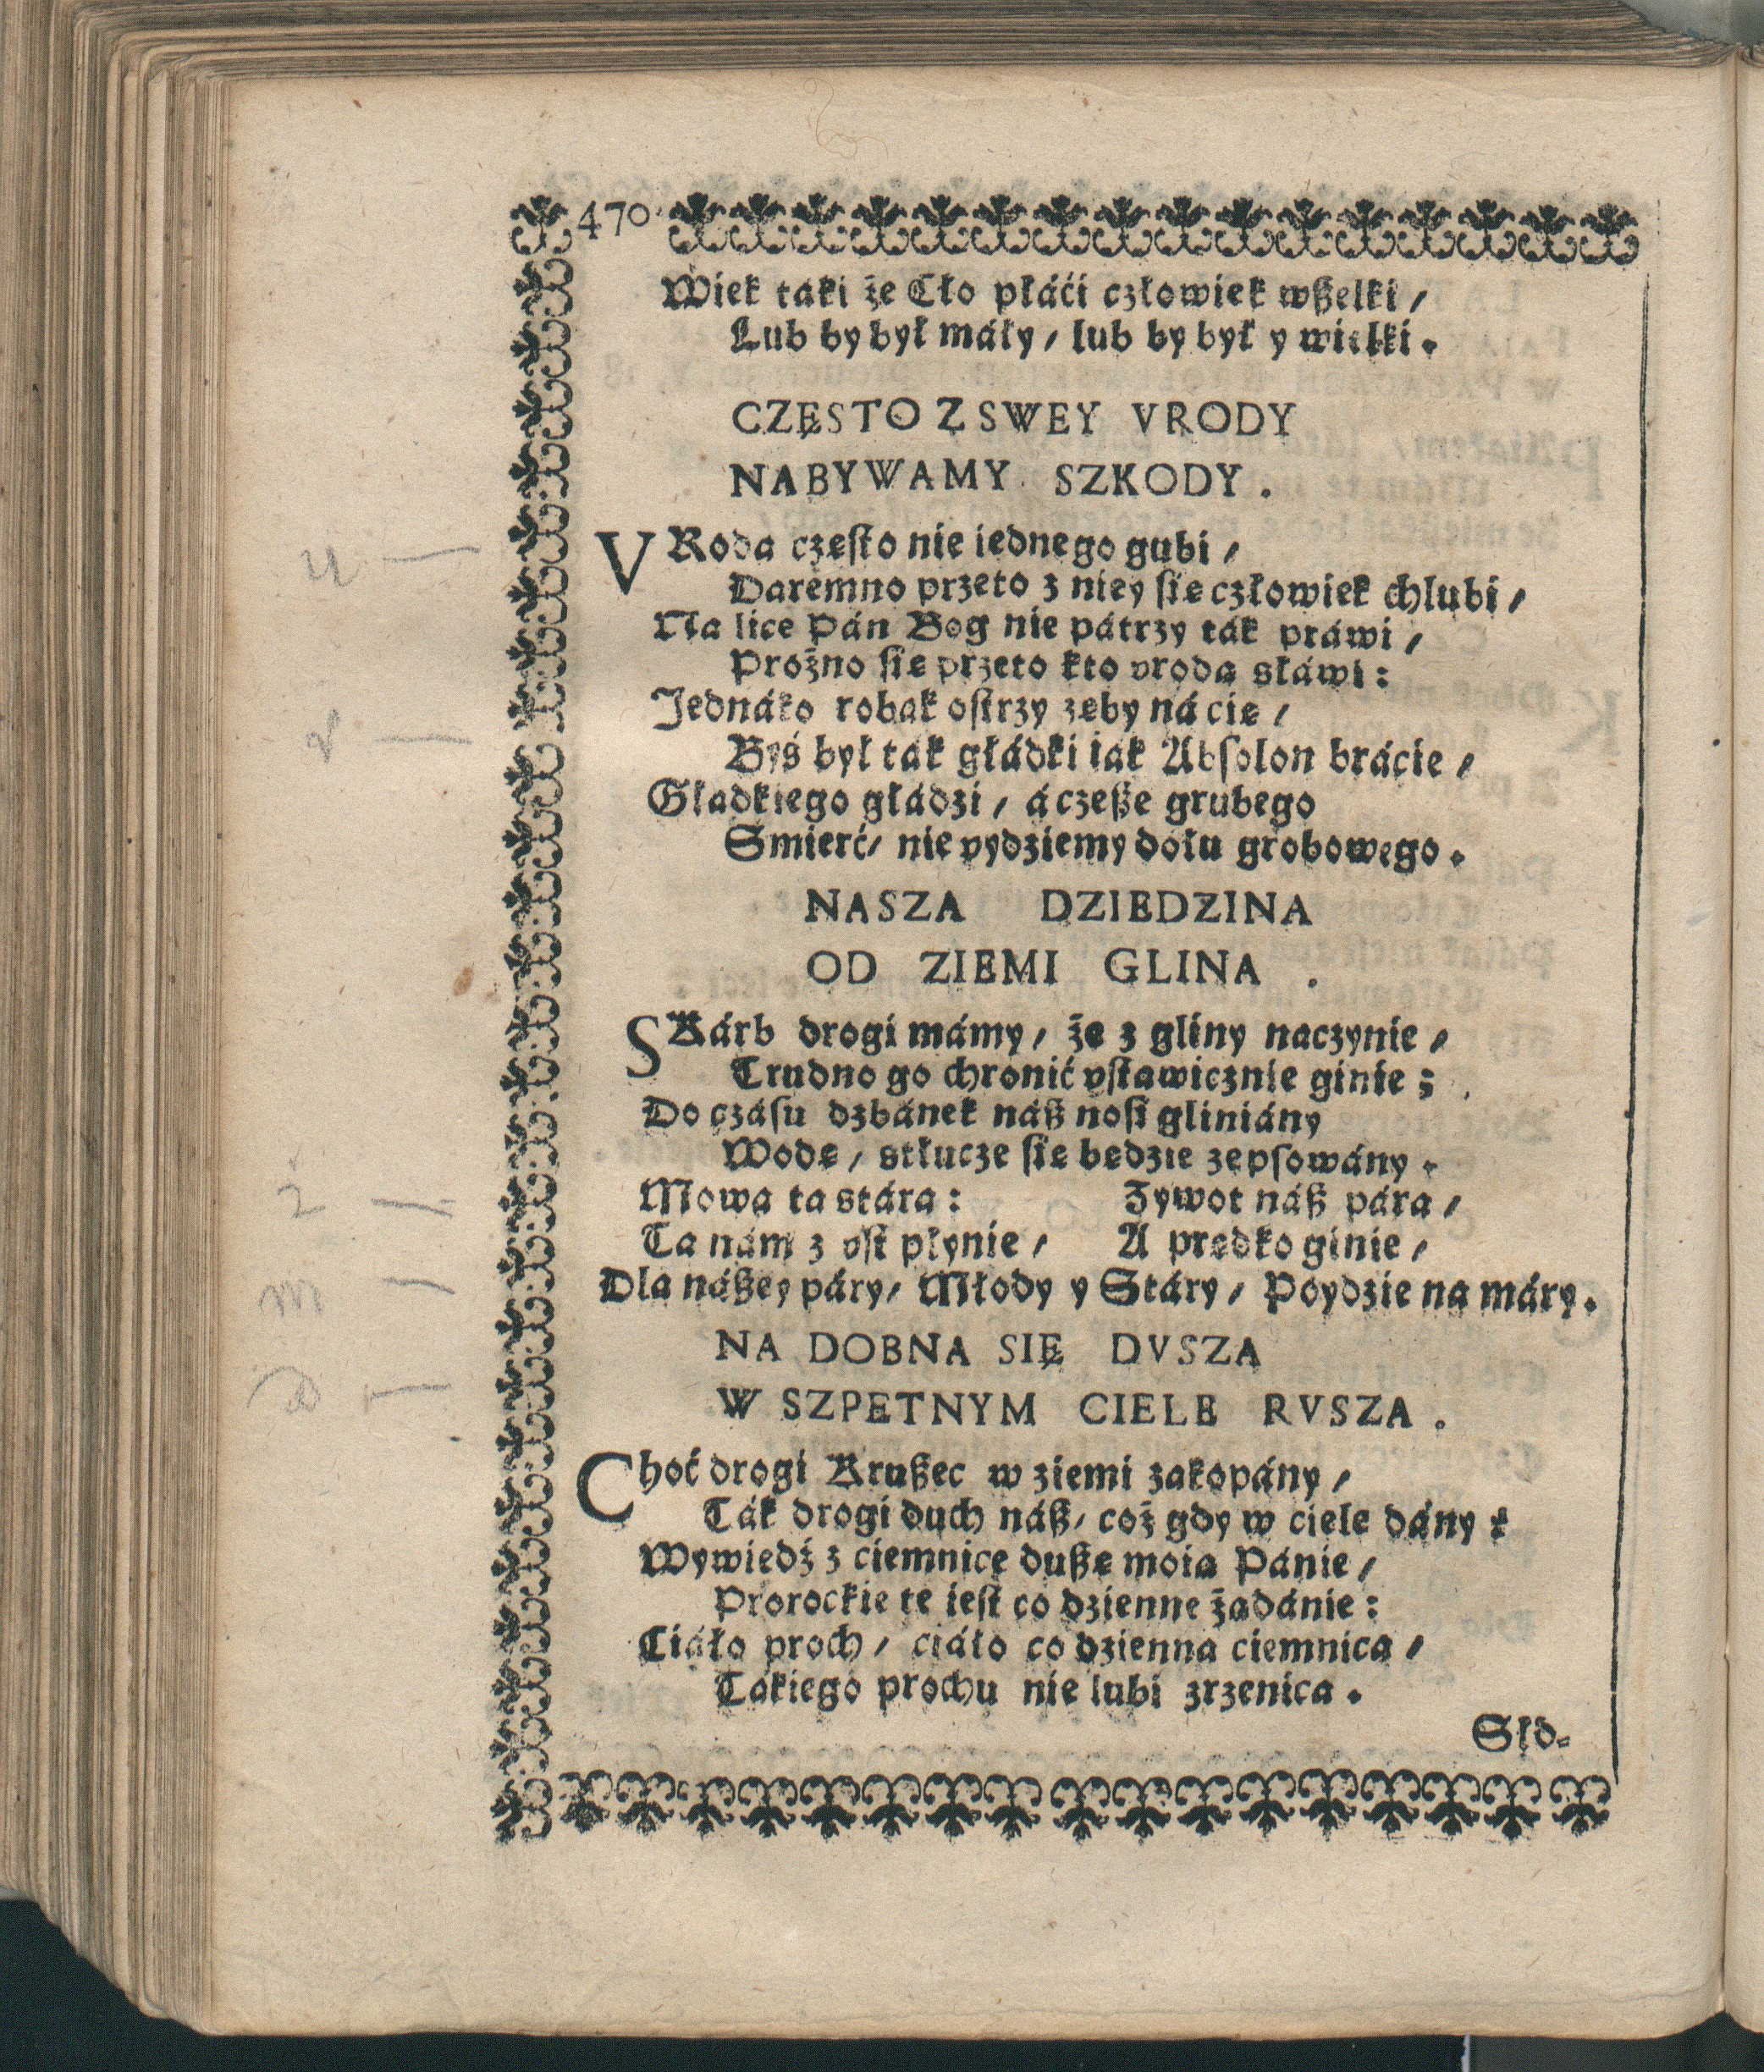 470
Wiek táki że Cło płáći człowiek wßelki /
Lub by był máły / lub by był y wielki.
CZĘSTO Z SWEY VRODY
NABYWAMY SZKODY.
VRoda często nie iednego gubi /
Daremno przeto z niey się człowiek chlubi /
Na lice Pán Bog nie pátrzy ták práwi /
Prożno się przeto kto vrodą słáwi:
Jednáko robak ostrzy zęby ná cię /
Byś był ták głádki iák Absolon brácie /
Głádkiego głádzi / á czeße grubego
Smierć / nie vydziemy dołu grobowego.
NASZA DZIEDZINA
OD ZIEMI GLINA.
SKárb drogi mámy / że z gliny naczynie /
Trudno go chronić vstawicznie ginie;
Do czásu dzbánek náß nosi gliniány
Wodę / stłucze się będzie zepsowány.
Mowa ta stára: Zywot náß pára /
Ta nám z vst płynie / A prędko ginie /
Dla náßey páry / Młody y Stáry / Poydzie na máry.
NA DOBNA SIĘ DVSZA
W SZPETNYM CIELE RVSZA.
Choć drogi Krußec w ziemi zakopány /
Ták drogi duch náß / coż gdy w ciele dány:
Wywiedź z ciemnice dußę moią Pánie /
Prorockie te iest co dzienne żądánie:
Ciáło proch / ciáło co dzienna ciemnica /
Tákiego prochu nie lubi zrzenica.